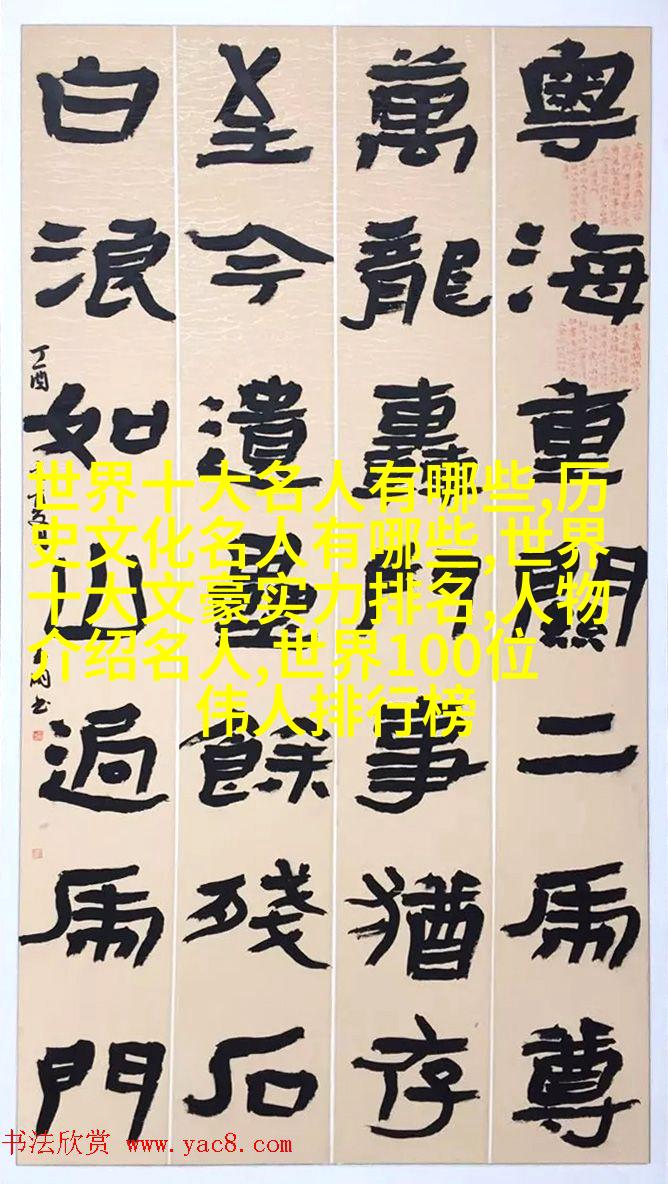 粵海重關二虎尊
萬龍轟鬥事猶存
至今遺壘餘殘石
白浪如山過虎門
丁酉
世界十大名人有哪些,历
史文化名人有哪些,世界
十大文豪实力排名,人物
介绍名人,世界100位
伟人排行榜
书法欣赏 www.yac8.com